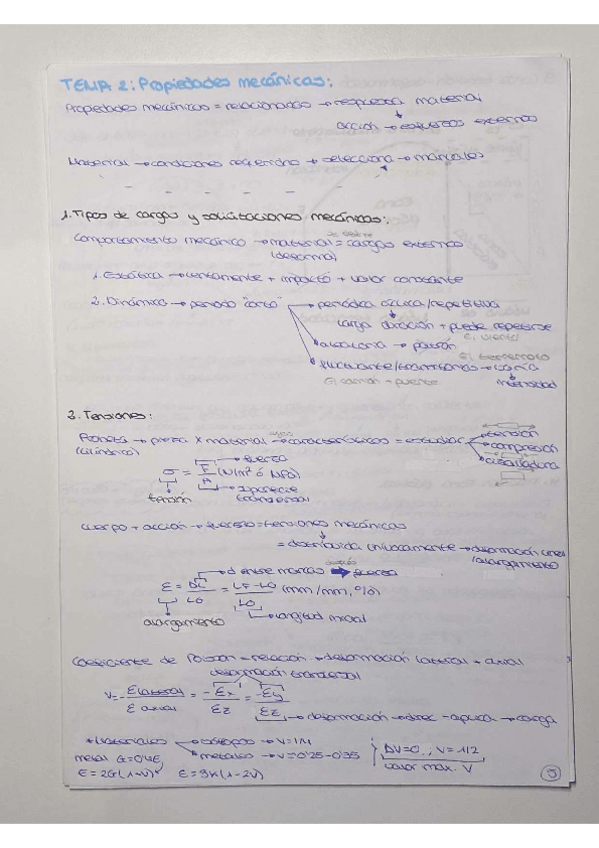 TEMA 2: Propiedades mecánicas:
Propiedades mecánicas = relacionado → respuesta material
acción → esfuerzos externos
Material → condiciones → selecciona →
1. Tipos de cargas y solicitaciones mecánicas:
Comportamiento mecánico → material = cargas externas
(deforma)
1. Estática → lentamente + impacto + valor constante
2. Dinámica → periodo "corto" → periódica cíclica/repetitiva
larga duración + puede repetirse
Ej. viento
aleatoria → patrón
Ej. terremoto
fluctuante/transitorias → varía
Ej. camión + puente
intensidad
3. Tensiones:
Probeta → pieza x material → características = estudiar → tensión
(cilíndrica)
ensayo
compresión
cizalladura
fuerza
σ = F/A (N/m² ó MPa)
tensión
superficie
transversal
Cuerpo + acción → fuerzas = tensiones mecánicas
= distribuida unívocamente → deformación
/alargamiento
d entre marcas → después fuerza
ε = ΔL/L0 = LF-L0/L0 (mm/mm, %)
alargamiento
longitud inicial
Coeficiente de Poisson = relación → deformación lateral + axial
deformación transversal
V = -ε lateral/ε axial = -εx/εz = -εy/εz
deformación → direc = aplica → carga
* Materiales → isótopos → V = 1/4
metal G = 0'4E,
metales → V = 0'25-0'35
ΔV=0, V = 1/2
valor max. V
E = 3K(1-2V)